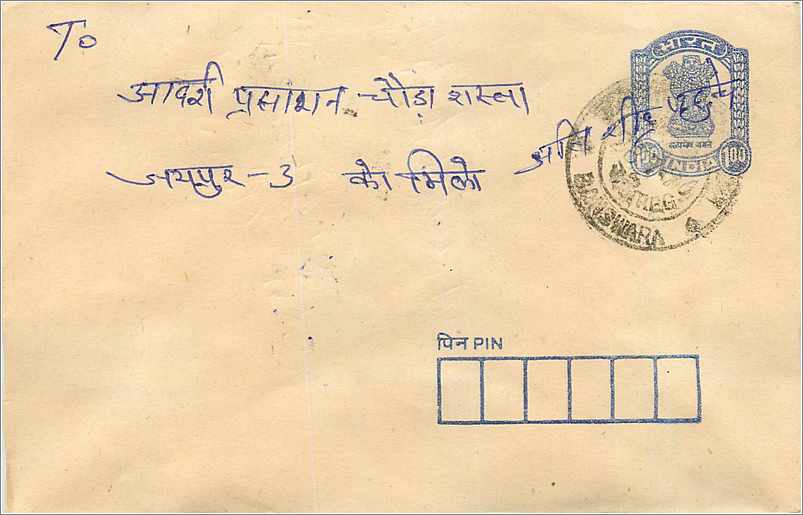 To
भारत
आदर्श प्रसांशन चौड़ा रास्ता
अति शीघ्र पहुंचे
जयपुर-3 को मिले
सत्यमेव जयते
100 INDIA 100
BANSWARA
पिन PIN